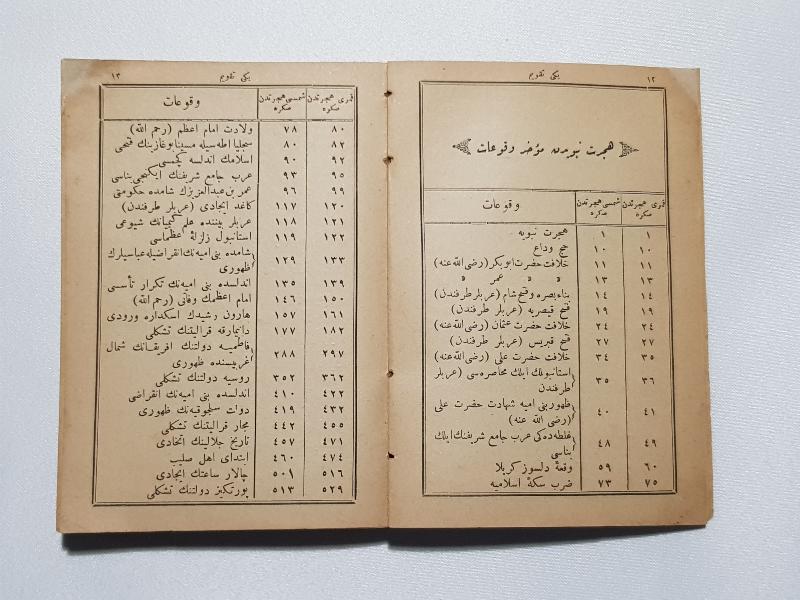 ١٢
یكی تقویم
هجرت نبویدن مؤخر وقوعات
قمری هجرتدن صكره شمسی هجرتدن صكره وقوعات
١ ١ هجرت نبویه
١٠ ١٠ حج وداع
١١ ١١ خلافت حضرت ابوبكر (رضی الله عنه)
١٣ ١٣ » » عمر »
١٤ ١٤ بناء بصره وفتح شام (عربلر طرفندن)
١٩ ١٩ فتح قیصریه (عربلر طرفندن)
٢٤ ٢٤ خلافت حضرت عثمان (رضی الله عنه)
٢٧ ٢٧ فتح قبریس (عربلر طرفندن)
٣٥ ٣٤ خلافت حضرت علی (رضی الله عنه)
٣٦ ٣٥ استانبولك ایلك محاصره سی (عربلر
طرفندن
٤١ ٤٠ ظهور بنی امیه شهادت حضرت علی
(رضی الله عنه)
٤٩ ٤٨ غلطه ده كی عرب جامع شریفنك ایلك
بناسی
٦٠ ٥٩ وقعۀ دلسوز كربلا
٧٥ ٧٣ ضرب سكۀ اسلامیه
یكی تقویم
١٣
قمری هجرتدن صكره شمسی هجرتدن صكره وقوعات
٨٠ ٧٨ ولادت امام اعظم (رحم الله)
٨٢ ٨٠ سجلیا اطه سیله مسینا بوغازینك فتحی
٩٢ ٩٠ اسلامك اندلسه كچمسی
٩٥ ٩٣ عرب جامع شریفنك ایكنجی بناسی
٩٩ ٩٦ عمر بن عبدالعزیزك شامده حكومتی
١٢٠ ١١٧ كاغد ایجادی (عربلر طرفندن)
١٢١ ١١٨ عربلر بیننده علم كیمیانك شیوعی
١٢٢ ١١٩ استانبول زلزلۀ عظماسی
١٣٣ ١٢٩ شامده بنی امیه نك انقراضیله عباسیلرك
ظهوری
١٣٩ ١٣٥ اندلسده بنی امیه نك تكرار تأسسی
١٥٠ ١٤٦ امام اعظمك وفاتی (رحم الله)
١٦١ ١٥٧ هارون رشیدك اسكداره ورودی
١٨٢ ١٧٧ دانیمارقه قرالیتنك تشكلی
٢٩٧ ٢٨٨ فاطمیه دولتنك افریقانك شمال
غربیسنده ظهوری
٣٦٢ ٣٥٢ روسیه دولتنك تشكلی
٤٢٢ ٤١٠ اندلسده بنی امیه نك انقراضی
٤٣٢ ٤١٩ دولت سلجوقیه نك ظهوری
٤٥٥ ٤٤٢ مجار قرالیتنك تشكلی
٤٧١ ٤٥٧ تاریخ جلالینك اتخادی
٤٧٤ ٤٦٠ ابتدای اهل صلیب
٥١٦ ٥٠١ چالار ساعتك ایجادی
٥٢٩ ٥١٣ پورتكیز دولتنك تشكلی